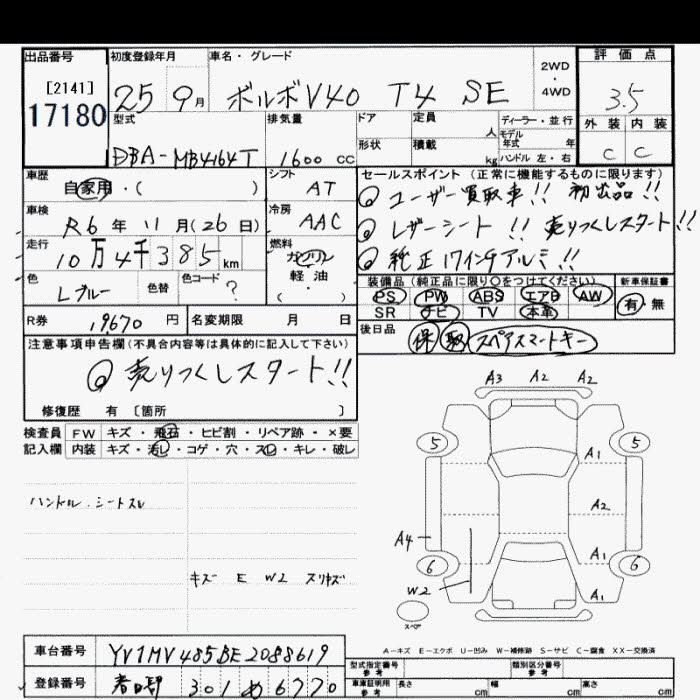 出品番号 初度登録年月 車名・グレード 評価点
[2141] 2WD・4WD
17180 25 9月 ボルボV40 T4 SE 3.5
型式 排気量 ドア 定員 人 ディーラー・並行 外装 内装
DBA-MB4164T 1600cc 形状 積載 kg モデル年式 年 ハンドル 左・右 C C
車歴 自家用・( ) シフト AT セールスポイント(正常に機能するものに限ります)
車検 R6年 11月(26日) 冷房 AAC ◎ユーザー買取車!! 初出品!!
走行 10万4千385km 燃料 ガソリン 軽油 ( ・ ) ◎レザーシート!! 売りつくしスタート!!
◎純正17インチアルミ!!
色 Lブルー 色替 色コード ? 装備品(純正品に限り○をつけてください) 新車保証書
PS PW ABS エアB AW 有・無
R券 19670円 名変期限 月 日 SR ナビ TV 本革
注意事項申告欄(不具合内容等は具体的に記入して下さい) 後日品 保 取 スペアスマートキー
◎売りつくしスタート!!
修復歴 有 [箇所 ]
検査員 FW キズ・飛石・ヒビ割・リペア跡・×要
記入欄 内装 キズ・汚レ・コゲ・穴・スレ・キレ・破レ
A3 A2 A2
5 5
A1
ハンドル.シートスレ A2
A4 A1
キズ E W2 スリキズ 6 6
W2 A1
スペア
A-キズ E-エクボ U-凹み W-補修跡 S-サビ C-腐食 XX-交換済
車台番号 YV1MV485BE2088619 型式指定番号 参考 類別区分番号 参考
登録番号 春日部 301 め 6770 車庫証明用 参考 長さ cm 幅 cm 高さ cm